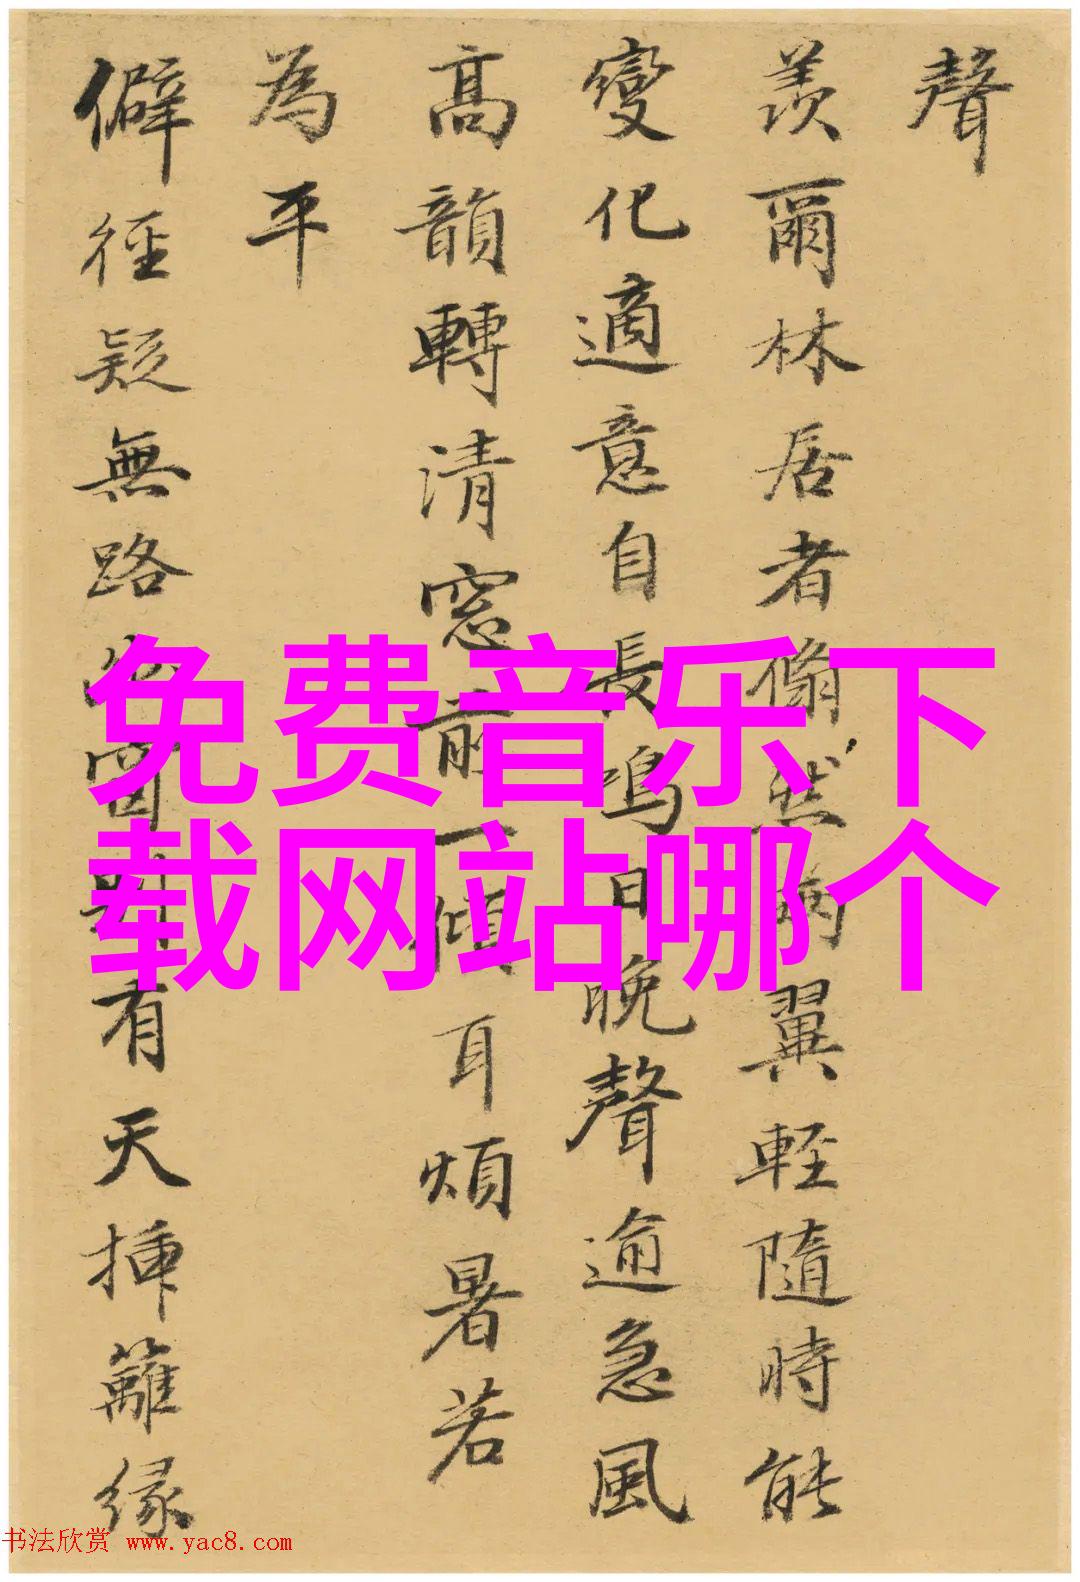 聲
羨爾林居者翛然兩翼輕隨時能
變化適意自長鳴日晚聲逾急風
高韻轉清窓前一傾耳煩暑若
為平
僻徑疑無路 有天揷籬緣
免费音乐下
载网站哪个
书法欣赏 www.yac8.com